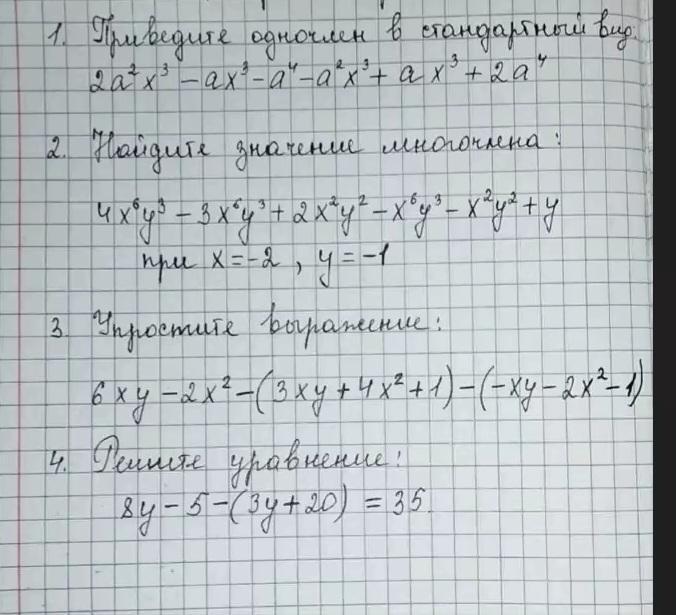 1. Приведите одночлен в стандартный вид:
2a²x³ – ax³ – a⁴ – a²x³ + ax³ + 2a⁴
2. Найдите значение многочлена:
4x⁶y³ – 3x⁶y³ + 2x²y² – x⁶y³ – x²y² + y
при x = –2, y = –1
3. Упростите выражение:
6xy – 2x² – (3xy + 4x² + 1) – (–xy – 2x² – 1)
4. Решите уравнение:
8y – 5 – (3y + 20) = 35.